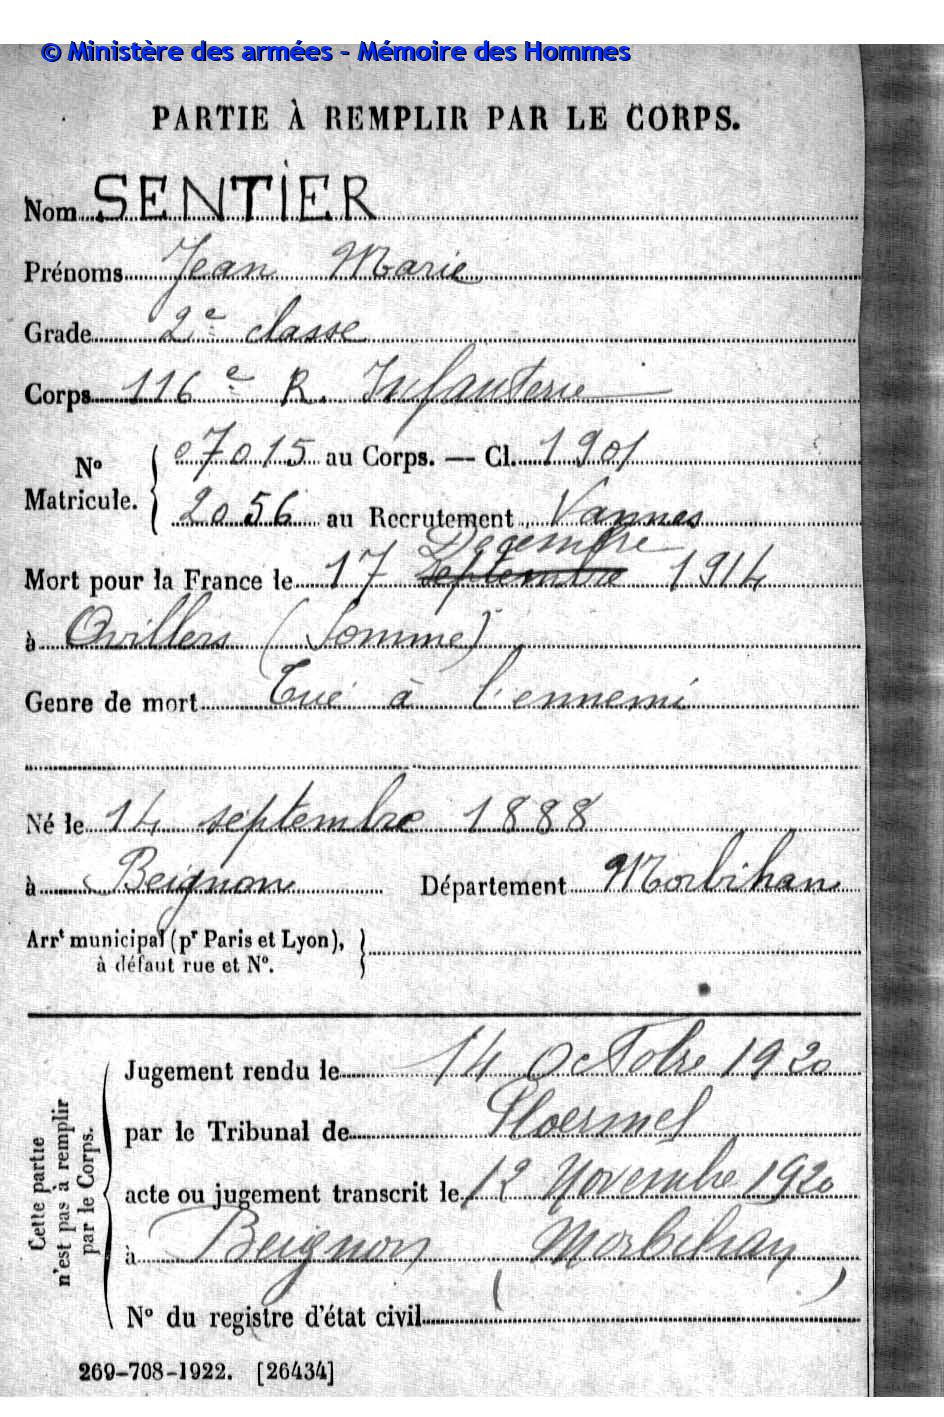 © Ministère des armées - Mémoire des Hommes
PARTIE À REMPLIR PAR LE CORPS.
Nom SENTIER
Prénoms Jean Marie
Grade 2e classe
Corps 116e R. Infanterie
No Matricule. { 07015 au Corps. — Cl. 1901
2056 au Recrutement Vannes
Decembre
Mort pour la France le 17 Septembre 1914
à Ovillers (Somme)
Genre de mort Tué à l'ennemi
Né le 14 septembre 1888
à Beignon Département Morbihan
Arrt municipal (pr Paris et Lyon), }
à défaut rue et No.
Cette partie n'est pas à remplir par le Corps.
Jugement rendu le 14 Octobre 1920
par le Tribunal de Ploermel
acte ou jugement transcrit le 12 Novembre 1920
à Beignon (Morbihan)
No du registre d'état civil
269-708-1922. [26434]